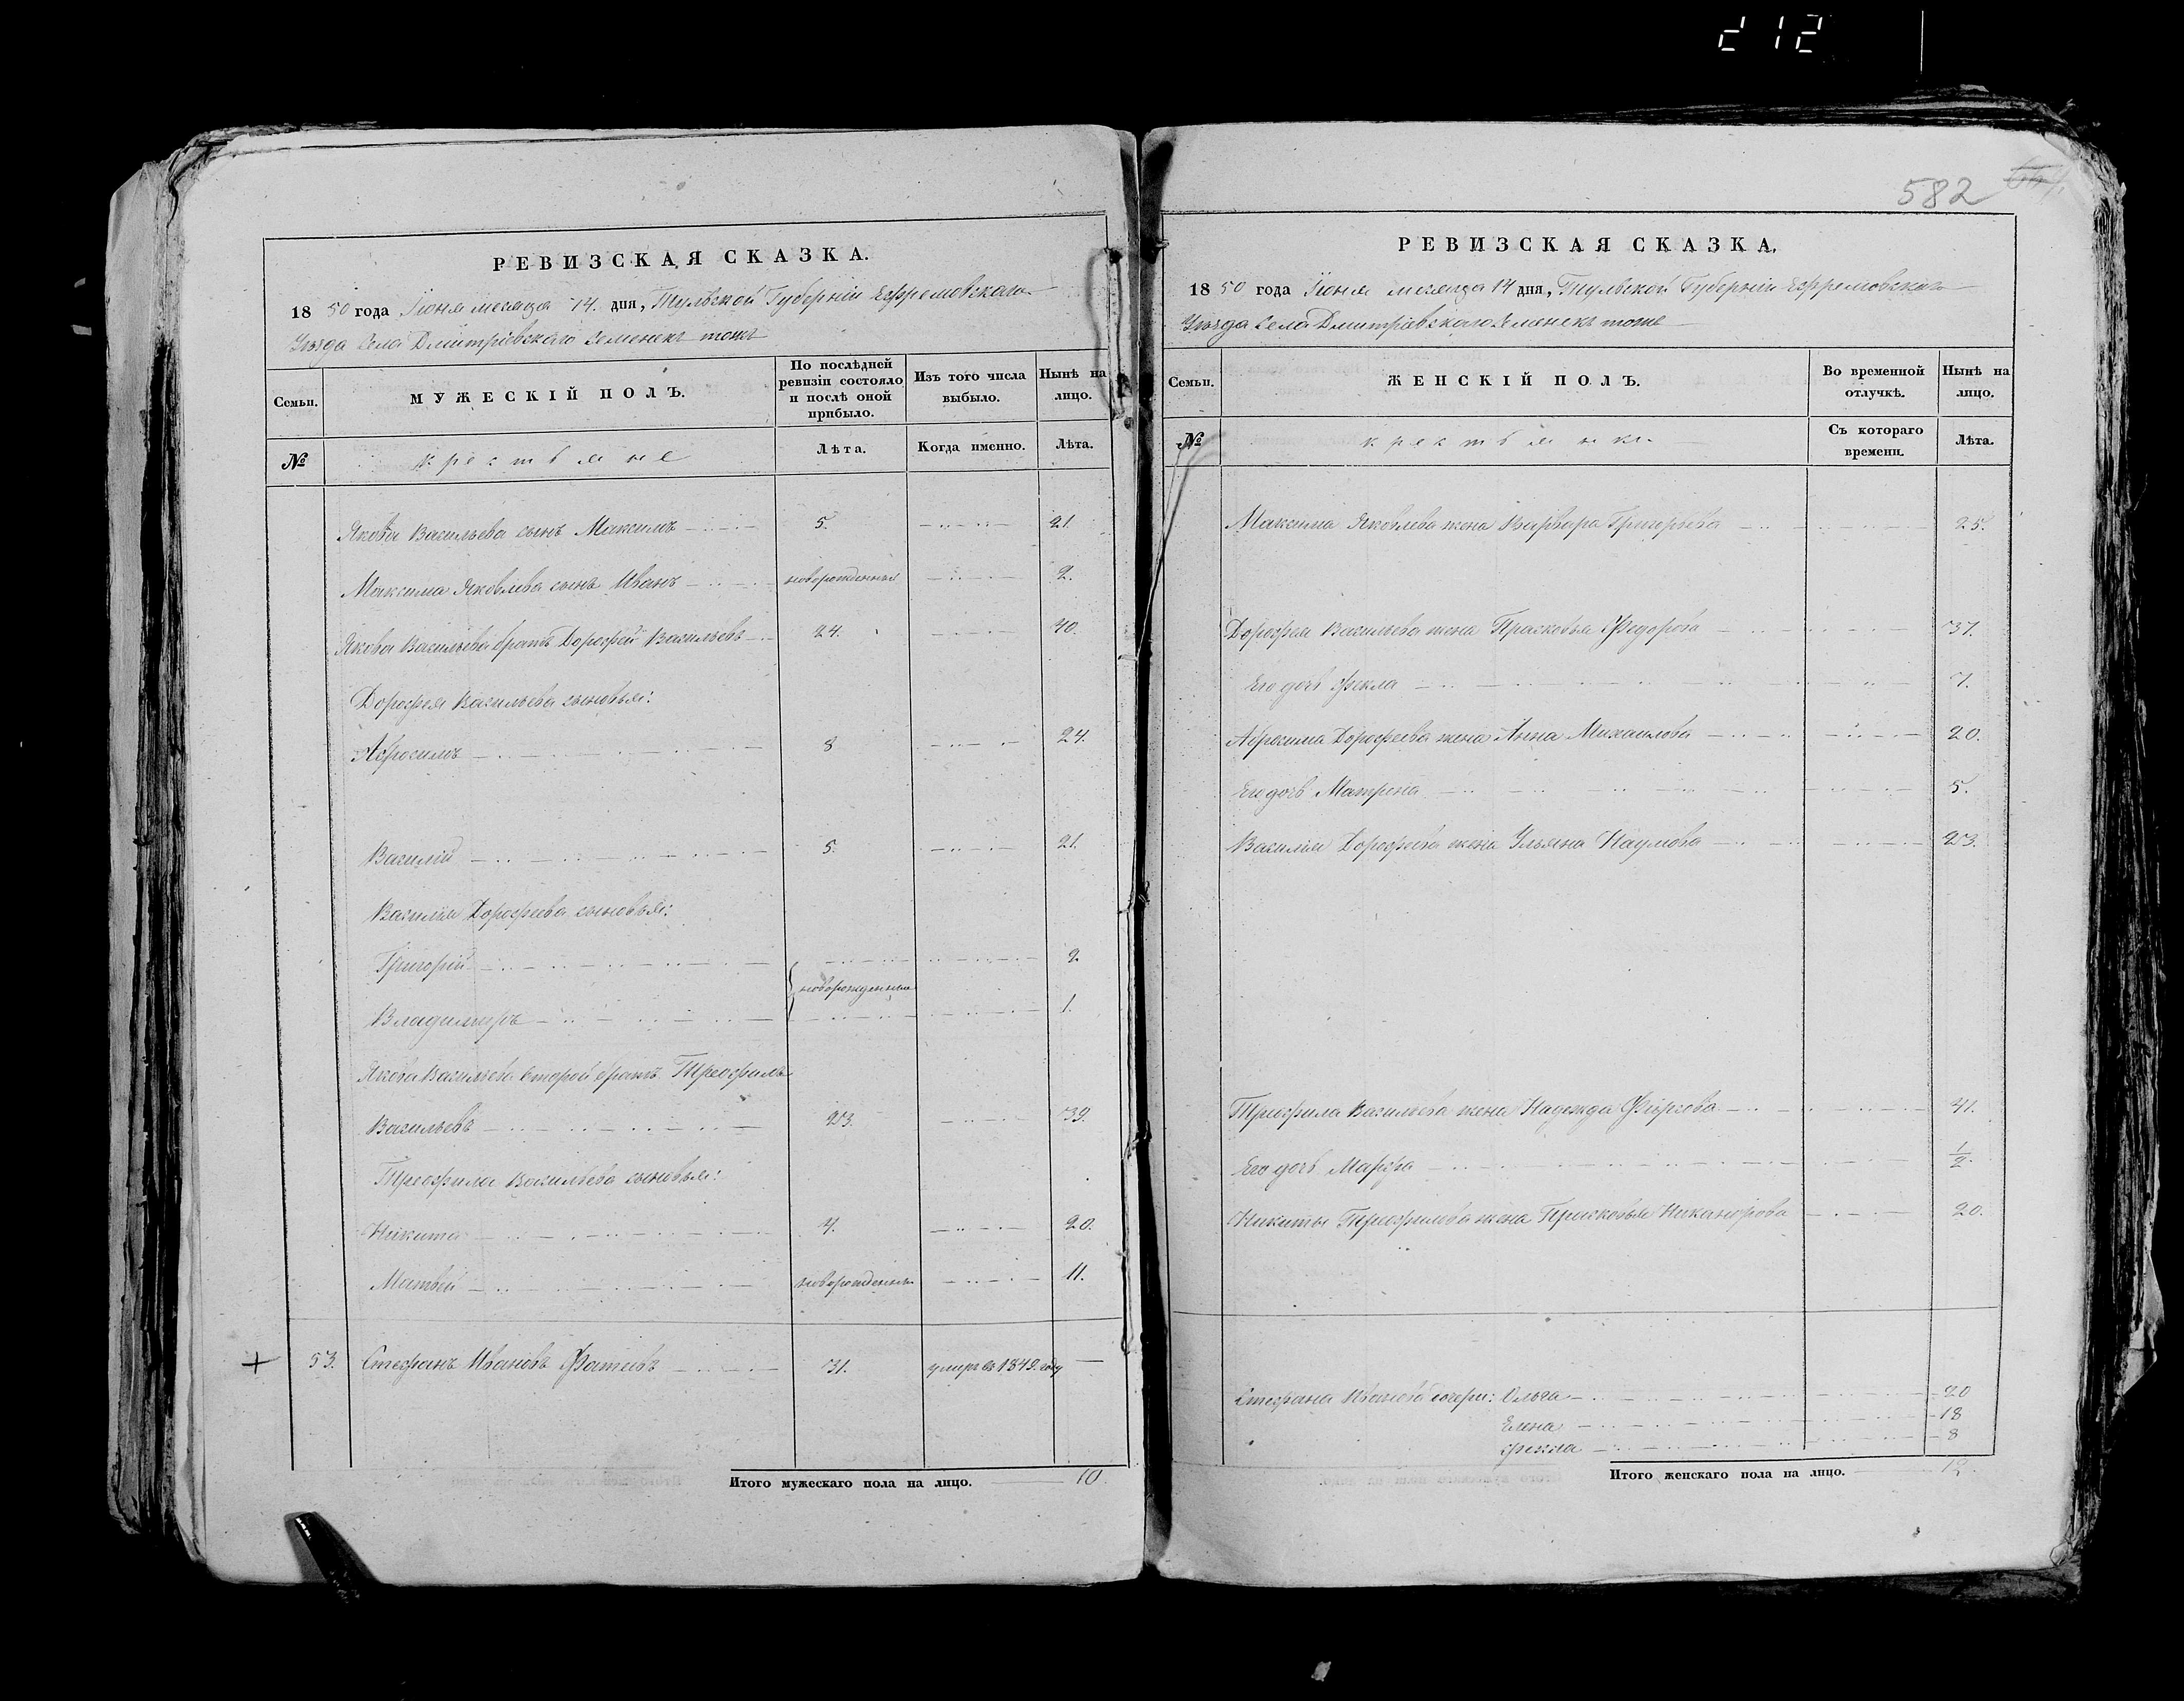 212
РЕВИЗСКАЯ СКАЗКА.
1850 года Іюня месяца 14. дня, Тульской Губерніи Ефремовскаго
Уѣзда Села Дмитріевскаго Семенекъ тожъ
Семьи.
МУЖЕСКІЙ ПОЛЪ.
По послѣдней ревизіи состояло и послѣ оной прибыло.
Изъ того числа выбыло.
Нынѣ на лицо.
№
крестьяне
Лѣта.
Когда именно.
Лѣта.
Якова Васильева сынъ Максимъ 5. 21.
Максима Яковлева сынъ Иванъ новорожденный 2.
Якова Васильева братъ Дорофей Васильевъ 24. 40.
Дорофея Васильева сыновья:
Абросимъ 8 24.
Василій 5. 21.
Василія Дорофеева сыновья:
Григорій 2.
новорожденные
Владимиръ 1.
Якова Васильева второй братъ Трефилъ
Васильевъ 23. 39.
Трефила Васильева сыновья:
Никита 4. 20.
Матвей новорожденный 11.
53. Стефанъ Ивановъ Фатеевъ 31. умеръ въ 1849. году
Итого мужескаго пола на лицо. 10.
582
РЕВИЗСКАЯ СКАЗКА.
1850 года Іюня месяца 14 дня, Тульской Губерніи Ефремовскаго
Уѣзда Села Дмитріевскаго Семенекъ тоже
Семьи.
ЖЕНСКІЙ ПОЛЪ.
Во временной отлучкѣ.
Нынѣ на лицо.
№
крестьянки
Съ котораго времени.
Лѣта.
Максима Яковлева жена Варвара Григорьева 25.
Дорофея Васильева жена Прасковья Федорова 37.
Его дочь Фекла 7.
Абросима Дорофеева жена Анна Михаилова 20.
Его дочь Матрена 5.
Василья Дорофеева жена Ульяна Наумова 23.
Трефила Васильева жена Надежда Фирсова 41.
Его дочь Марфа 1/2.
Никиты Трефилова жена Прасковья Никанорова 20.
Стефана Иванова дочери: Ольга 20
Елена 18
Фекла 8
Итого женскаго пола на лицо. 12.